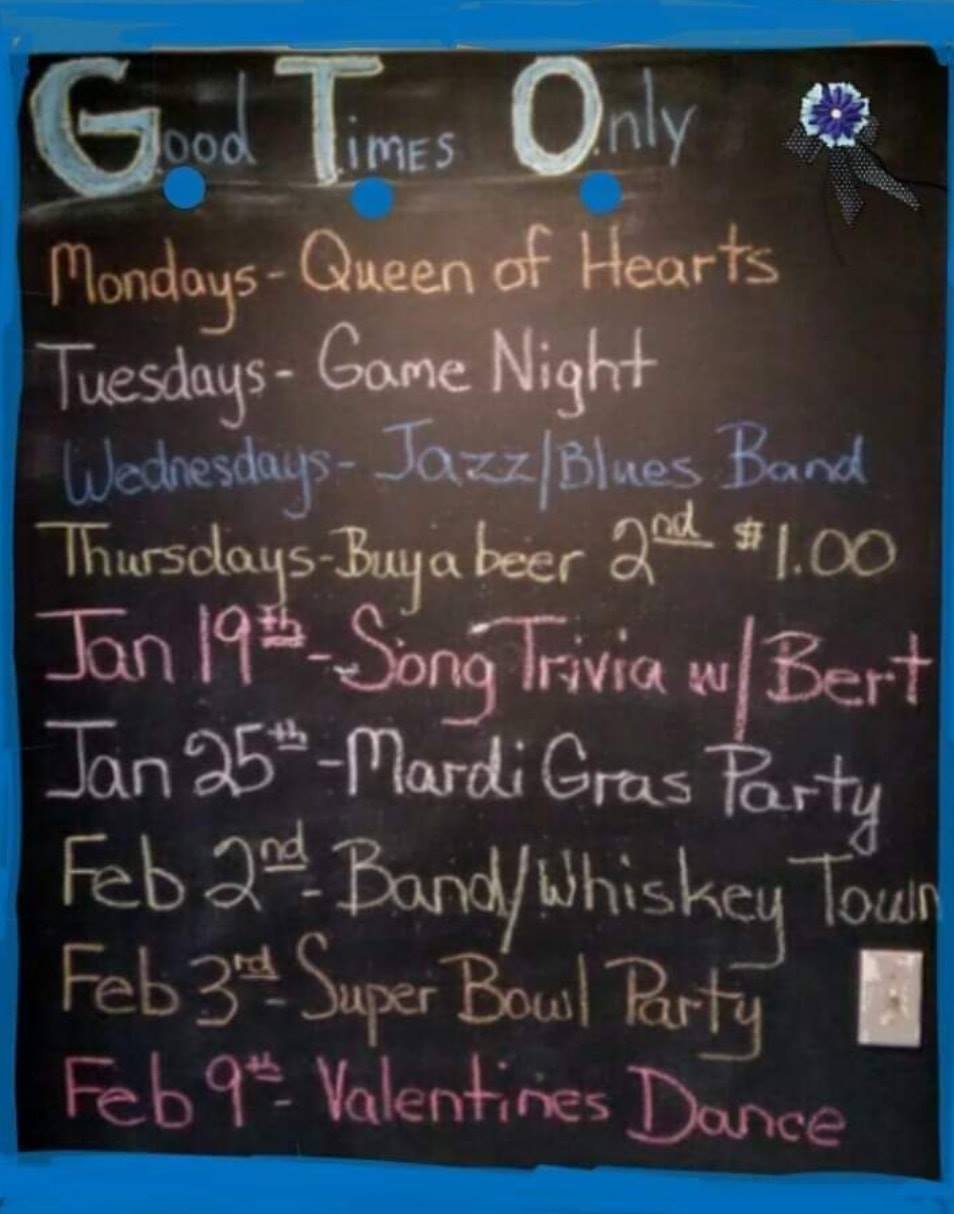 Good Times Only
Mondays - Queen of Hearts
Tuesdays - Game Night
Wednesdays - Jazz/Blues Band
Thursdays - Buy a beer 2nd $1.00
Jan 19th - Song Trivia w/ Bert
Jan 25th - Mardi Gras Party
Feb 2nd - Band/Whiskey Town
Feb 3rd - Super Bowl Party
Feb 9th - Valentines Dance